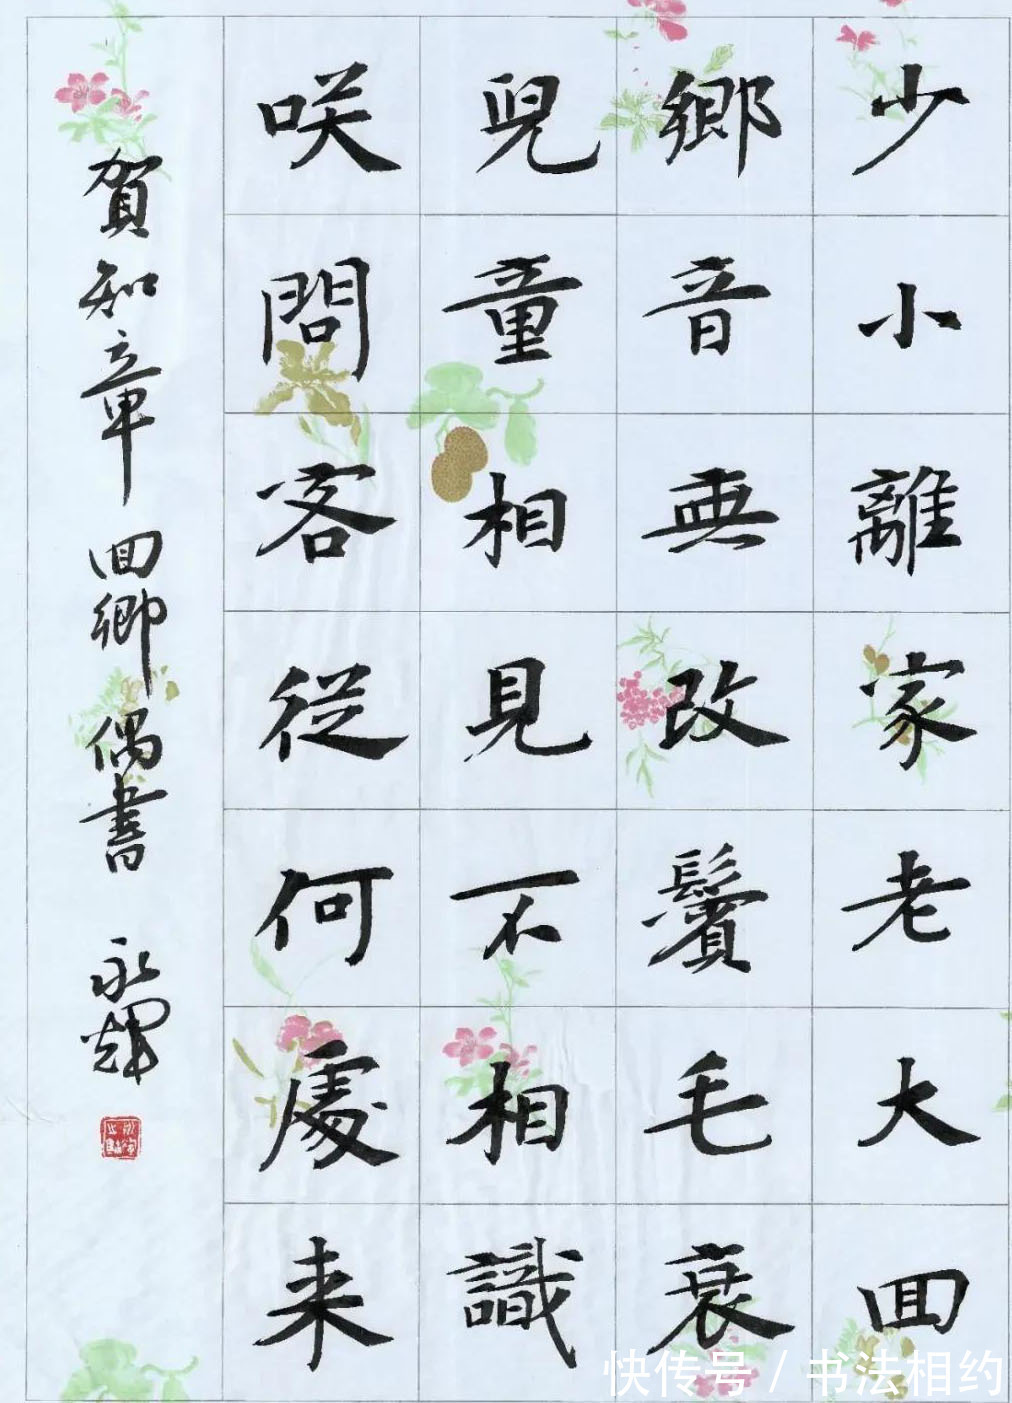 少小離家老大回
鄉音無改鬢毛衰
兒童相見不相識
咲問客從何處来
賀知章回鄉偶書 永輝
快传号 / 书法相约